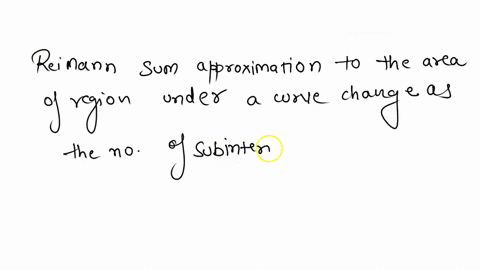 Reimann sum approximation to the area
of region under a curve change as
the no. of subinter